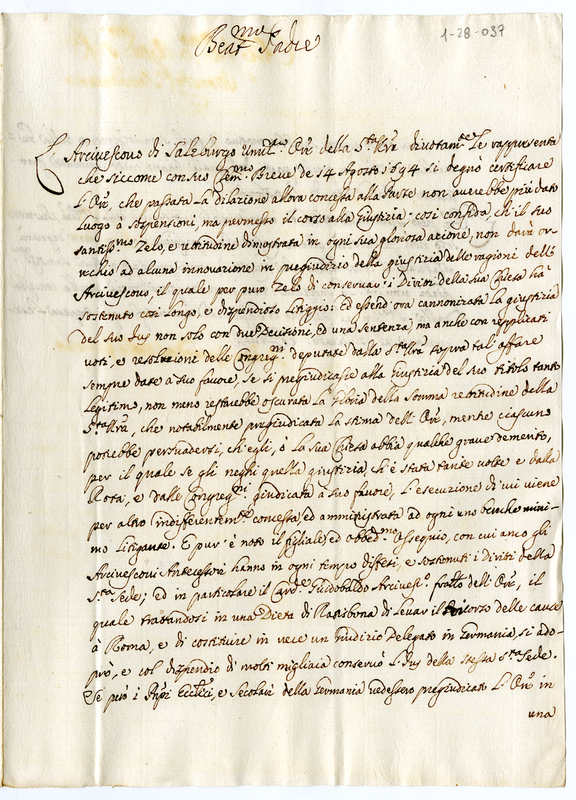 1-28-037
Beat.mo Padre
L'Arcivescovo di Salzburgo Umil.mo Or.e della S.tà V.ra divotam.te Le rappresenta
che siccome con suo Clem.mo Breve de 14 Agosto 1694 si degnò certificare
L'Or.e, che passata la dilazione allora concessa alla Parte non averebbe più dato
luogo à sospensioni, ma permesso il corso alla Giustizia: così confida, ch'il suo
santiss.mo Zelo, e rettitudine dimostrata in ogni sua gloriosa azione, non darà or-
recchio ad alcuna innovazione in pregiudizio della giustizia delle ragioni dell'
Arcivescovo, il quale per puro Zelo di conservar i Diritti della sua Chiesa hà
sostenuto così longo, e dispendioso Litiggio: Ed essend'ora cannonizata la giustizia
del suo Jus non solo con due Decisioni, ed una sentenza, ma anche con replicati
voti, e resoluzioni delle Congreg.ni deputate dalla S.tà V.ra sopra tal affare
sempre date à suo favore, se si pregiudicasse alla Giustizia del suo titolo tanto
legitimo, non meno restarebbe oscurata la Gloria della somma rettitudine della
S.tà V.ra, che notabilmente pregiudicata la stima dell'Or.e, mentre ciascuno
potrebbe persuadersi, ch'egli, ò la sua Chiesa abbia qualche grave demerito,
per il quale se gli neghi quella giustizia ch'è stata tante volte e dalla
Rota, e dalle Congreg.ni giudicata à suo favore, l'esecuzione di cui viene
per altro indifferentem.te concessa, ed amministrata ad ogni uno benche mini-
mo Litigante. E pur è noto il figliale ed obbed.mo ossequio, con cui anco gli
Arcivescovi Antecessori hanno in ogni tempo difesi, e sostenuti i diritti della
S.ta Sede; ed in particolare il Card.le Guidobaldo Arcivesc.o fratello dell'Or.e, il
quale trattandosi in una Dieta di Ratisbona di levar il ricorso delle cause
à Roma, e di costituire in vece un Giudizio Delegato in Germania, si ado-
prò, e col dispendio di molti migliaia conservò l'Jus della stessa S.ta Sede.
Se però i Prpi Eccl.ci, e Secolari della Germania vedessero pregiudicato l'Or.e in
una